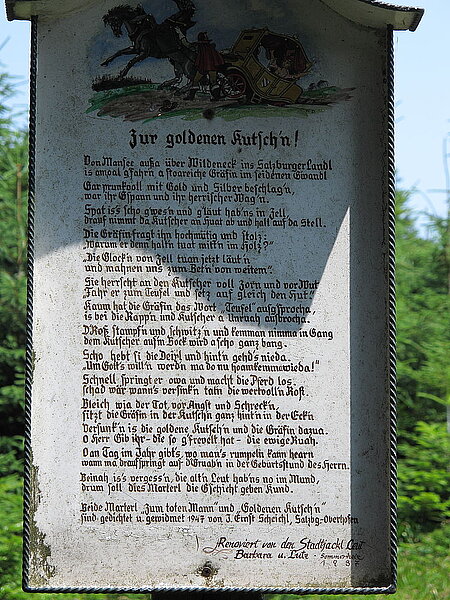 Zur goldenen Kutsch'n!
Von Mansee außa über Wildeneck ins Salzburger Landl
is amoal gfahrn a stoareiche Gräfin im seidenen Gwandl
Gar prunkvoll mit Gold und Silber beschlag'n,
war ihr Gspann und ihr herrischer Wag'n.
Spat is's scho gwes'n und g'läut hab'ns in Zell,
drauf nimmt da Kutscher an Huat ab und halt' auf da Stell.
Die Gräfin fragt ihn hochmütig und stolz:
"Warum er denn halt'n tuat mitt'n im Holz?"
"Die Glock'n von Zell tuan jetzt läut'n
und mahnen uns zum Bet'n von weitem".
Sie herrscht an den Kutscher voll Zorn und vor Wut
"Fahr er zum Teufel und setz' auf gleich den Hut".
Kaum hat die Gräfin das Wort "Teufel" ausg'sprocha,
is bei die Rapp'n und Kutscher a Unruah ausbrocha.
D'Roß stampf'n und schwitz'n und kemman nimma in Gang
dem Kutscher auf'n Bock wird a scho ganz bang.
Scho hebt si die Deixl und hint'n geht's nieda.
"Um Gott's will'n werd'n ma do nu hoamkemma wieda!"
Schnell springt er owa und macht die Pferd los.
schad wär wann's versink'n tatn die wertvoll'n Roß.
Bleich wia der Tot, vor Angst und Schreck'n,
sitzt die Gräfin in der Kutsch'n ganz hint'n in der Eck'n
Versunk'n is die goldene Kutsch'n und die Gräfin dazua.
O Herr Gib ihr - die so g'frevelt hat - die ewige Ruah.
Oan Tag im Jahr gibt's, wo man's rumpeln kann hearn
wann ma draufspringt auf d'Gruab'n in der Geburtsstund des Herrn.
Beinah is's vergess'n, die alt'n Leut hab'ns no im Mund,
drum soll dies Marterl die G'schicht geben Kund.
Beide Marterl "Zum toten Mann" und "Goldenen Kutsch'n"
sind gedichtet u. gewidmet 1947 von J. Ernst Scheichl, Salzbg-Oberhofen
Renoviert von den Stadtjackl Leut
Barbara u. Lutz - Sommer